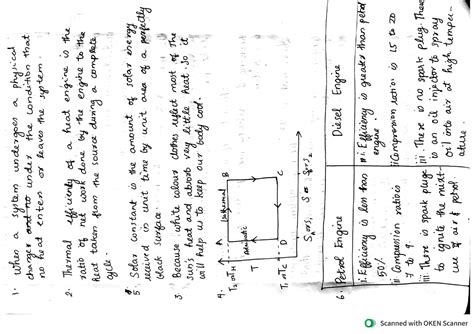 1. When a system undergoes a physical
change under the condition that
no heat enters or leaves the system.
2. Thermal efficiency of a heat engine is the
ratio of net work done by the engine to the
heat taken from the source during a complete
cycle.
5. Solar constant is the amount of solar energy
received in unit time by unit area of a perfectly
black surface.
3. Because white colour clothes reflect most of the
sun's heat and absorb very little heat. So it
will help us to keep our body cool.
4.
A
Isothermal
B
Adiabatic
T
D
C
6. Petrol Engine
Diesel Engine
i. Efficiency is less than
50%
i. Efficiency is greater than petrol
engine
ii Compression ratio is
7 to 9.
ii Compression ratio is 15 to 20
iii There is spark plug
to ignite the mixt-
ure of air & petrol
iii There is no spark plug. There
is an oil injector to spray
oil into air at high tempe-
rature.
Scanned with OKEN Scanner